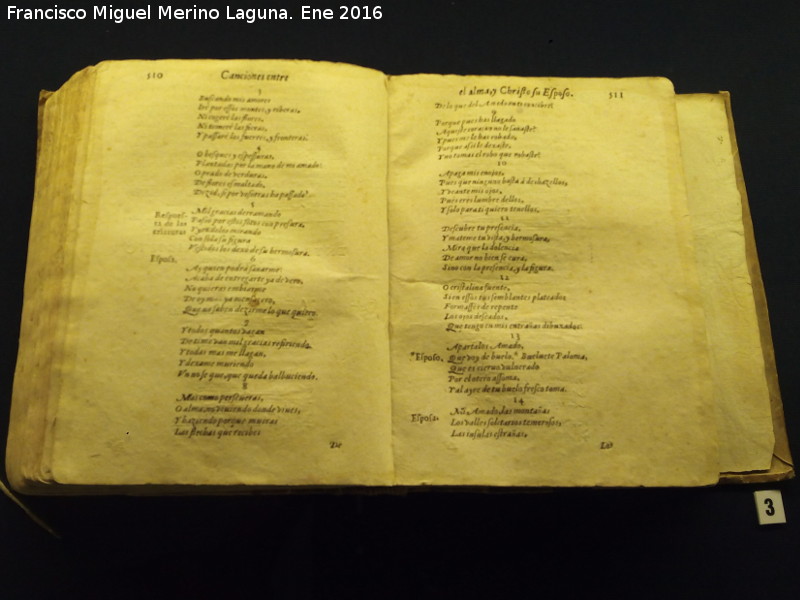 Francisco Miguel Merino Laguna. Ene 2016
510 Canciones entre
3
Buscando mis amores
Ire por essos montes, y riberas,
Ni cogere las flores,
Ni temere las fieras,
Y passare los fuertes, y fronteras.
4
O bosques y espessuras,
Plantadas por la mano de mi amado!
O prado de verduras,
De flores esmaltado,
Dezid, si por vosotras ha passado?
5
Respuesta de las criaturas
Mil gracias derramando
Passò por estos sotos con presura,
Y yendolos mirando
Con sola su figura
Vestidos los dexò de su hermosura.
6
Esposa.
Ay quien podrà sanarme!
Acaba de entregarte ya de vero,
No quieras embiarme
De oy mas ya mensagero,
Que no saben dezirme lo que quiero.
7
Y todos quantos vagan
De ti me van mil gracias refiriendo,
Y todas mas me llagan,
Y dexame muriendo
Vn no se que, que queda balbuciendo.
8
Mas como perseueras,
O alma, no viuiendo donde viues,
Y haziendo porque mueras
Las flechas que recibes
De
el alma, y Christo su Esposo. 511
De lo que del Amado en ti concibes?
9
Porque pues has llagado
Aqueste coraçon no le sanaste?
Y pues me le has robado,
Porque assi le dexaste,
Y no tomas el robo que robaste?
10
Apaga mis enojos,
Pues que ninguno basta à deshazellos,
Y veante mis ojos,
Pues eres lumbre dellos,
Y solo para ti quiero tenellos.
11
Descubre tu presencia,
Y mateme tu vista, y hermosura,
Mira que la dolencia
De amor no bien se cura,
Sino con la presencia, y la figura.
12
O cristalina fuente,
Si en essos tus semblantes plateados
Formasses de repente
Los ojos deseados,
Que tengo en mis entrañas dibuxados.
13
Apartalos Amado,
*Esposo. Que voy de buelo.* Buelvete Paloma,
Que el cieruo vulnerado
Por el otero assoma,
Y al ayre de tu buelo fresco toma.
14
Esposa. Mi Amado, las montañas
Los valles solitarios nemorosos,
Las insulas estrañas,
Los
3